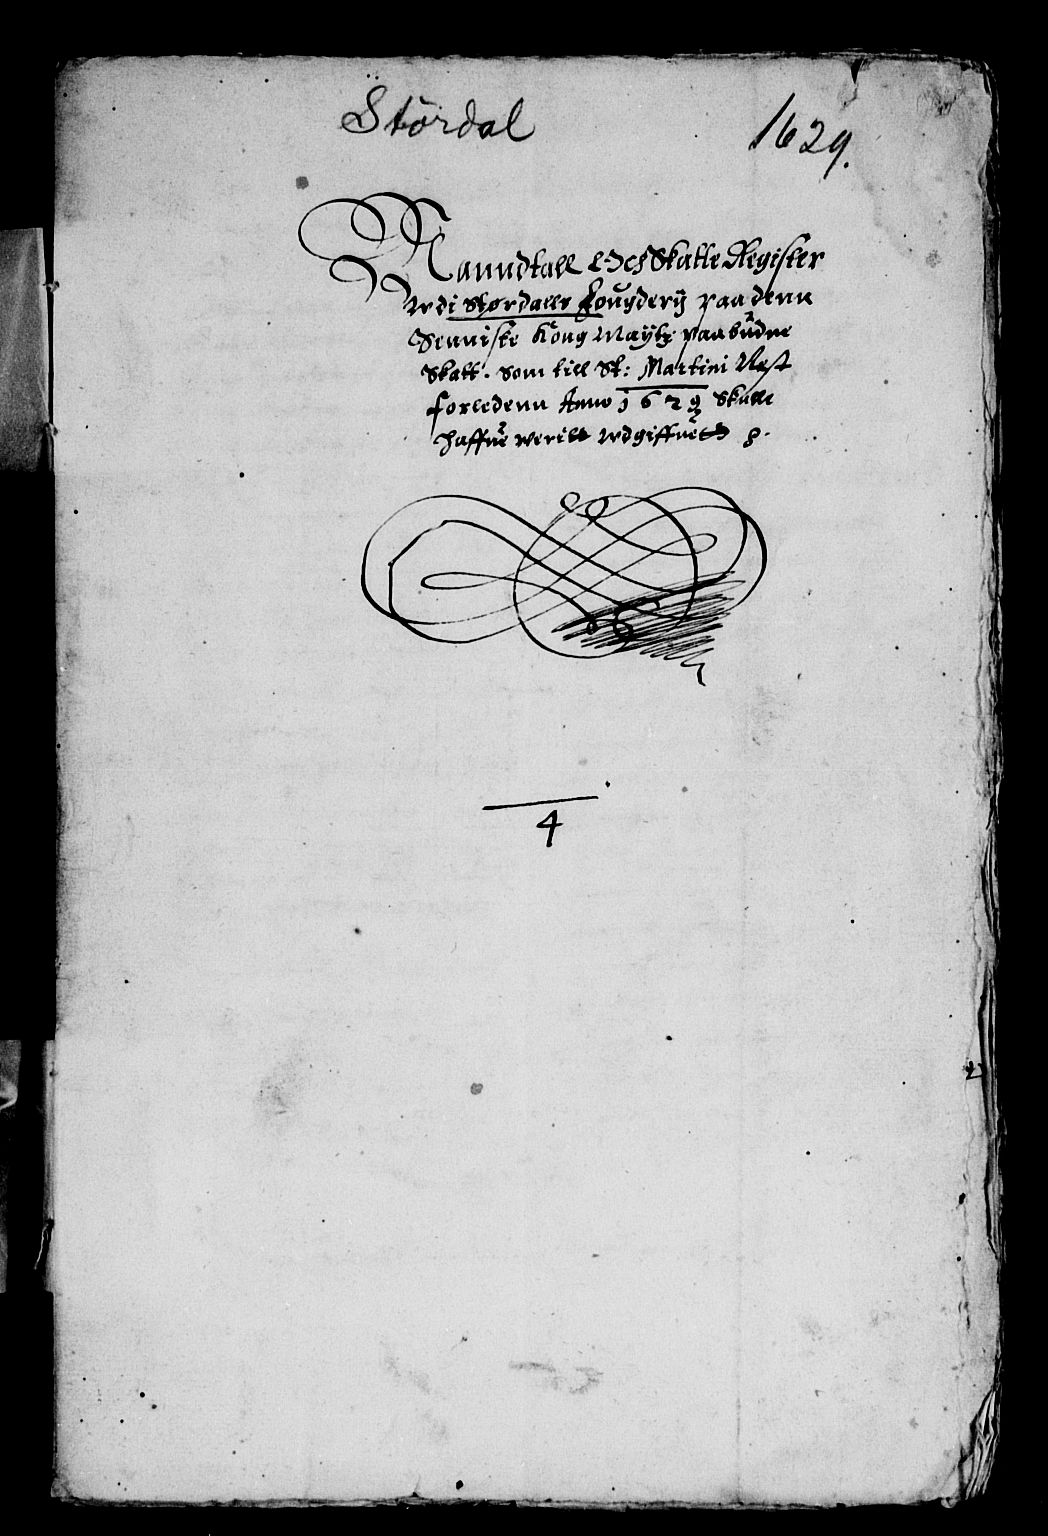 Stördal
1629.
Manndtall Och Skatte Register
Wdi Størdalls Fougderij paa denn
Seniiste Kong Maÿtz paabudne
Skatt. Som till St: Martini Nest
forledenn Anno 1629 Skulle
haffue weritt wdgiffuett
4